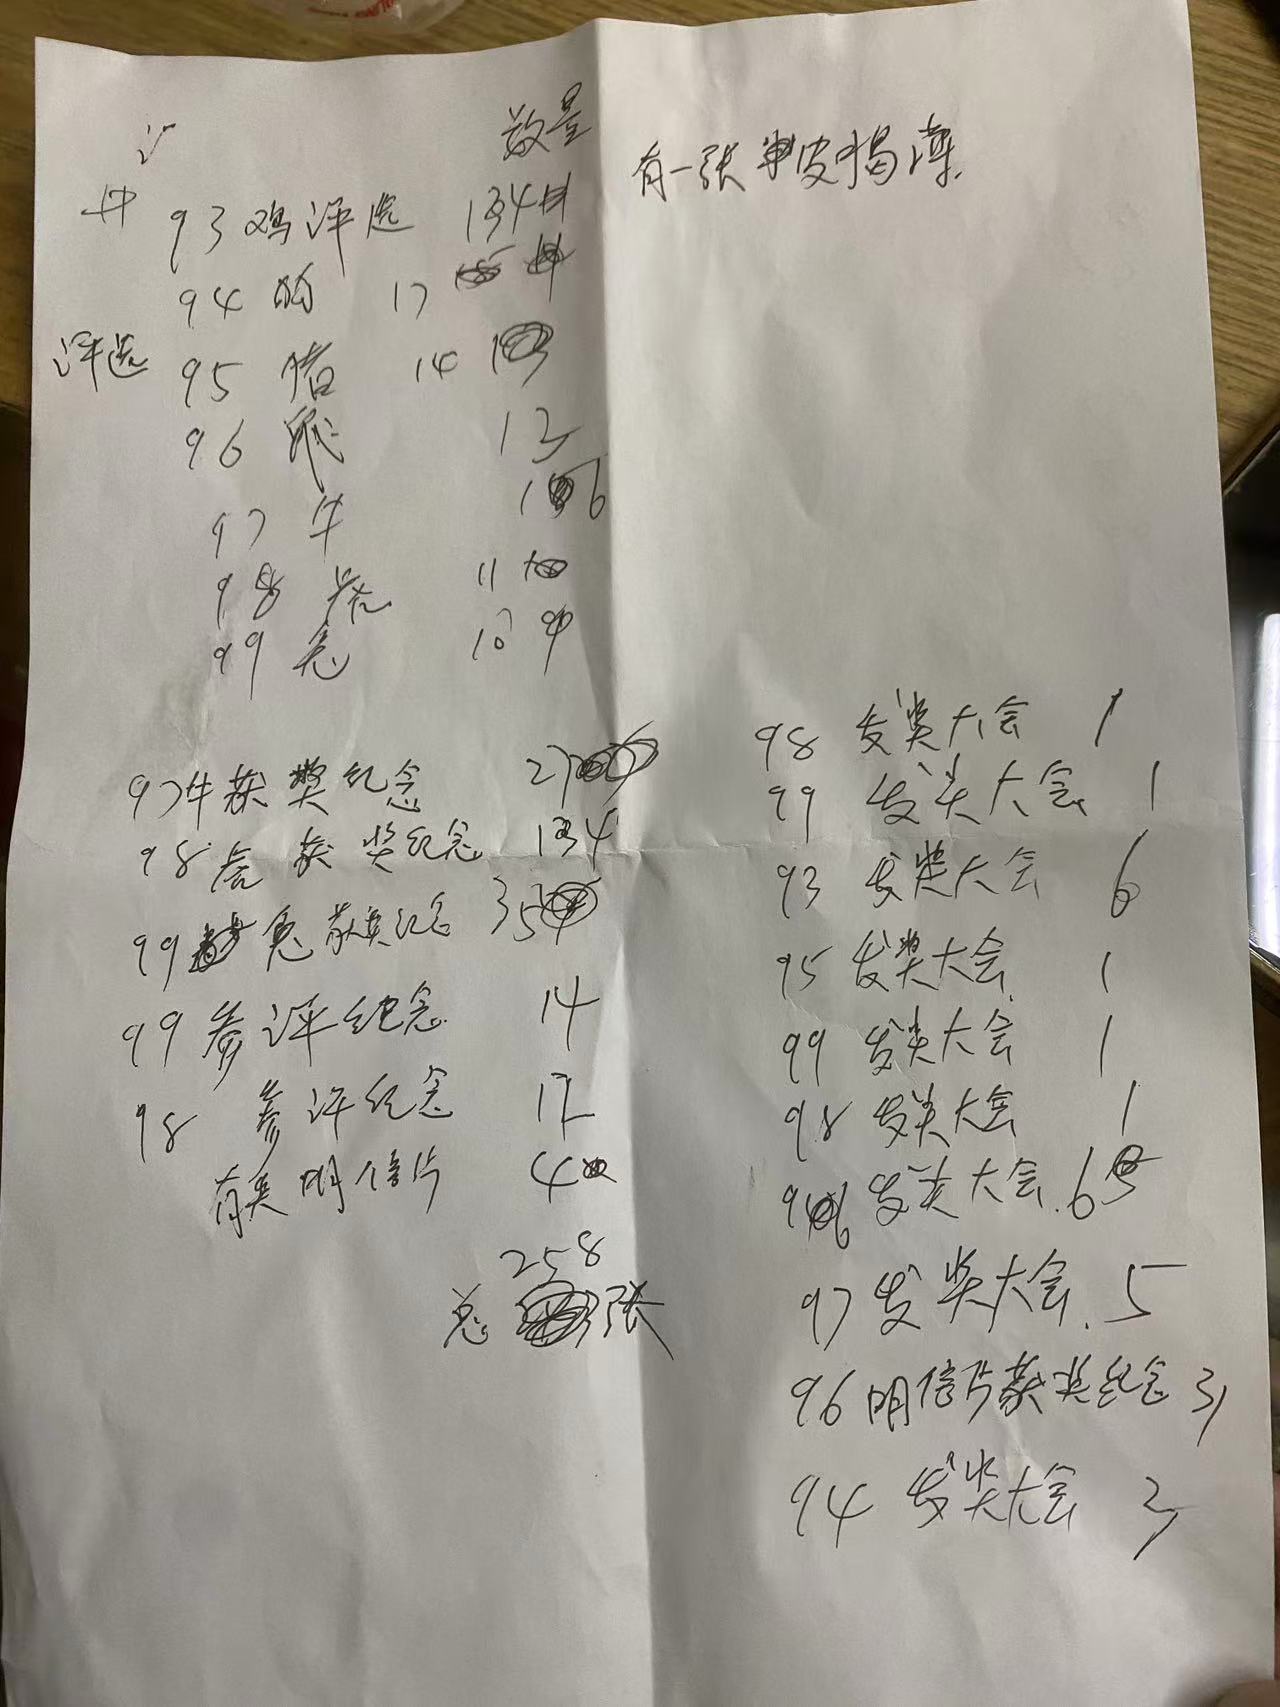 数量
93 鸡评选 14
94 狗 17
评选
95 猪 14
96 鼠 12
97 牛 16
98 虎 11
99 兔 10
97牛获奖纪念 27
98 虎 获奖纪念 14
99 兔 获奖纪念 35
99 参评纪念 14
98 参评纪念 12
有奖明信片 4
258
总 张
有一张 皮揭薄.
98 发奖大会 1
99 发奖大会 1
93 发奖大会 6
95 发奖大会 1
99 发奖大会 1
98 发奖大会 1
96 发奖大会 6
97 发奖大会. 5
96 明信片获奖纪念 3
94 发奖大会 3